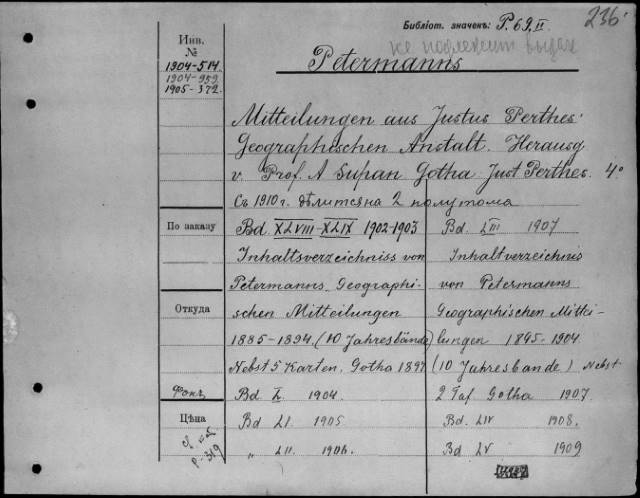 236
Библіот. значекъ: P. 69 II
не подлежит выдаче
Инв.
№
1904-514.
1904-959
1905-372.
Petermanns
Mitteilungen aus Justus Perthes'
Geographischen Anstalt. Herausg
v. Prof. A Supan Gotha Just Perthes. 4°
Съ 1910 г. дѣлится на 2 полутома
По заказу
Откуда
Фонъ
Цѣна
P-319
Bd. XLVIII-XLIX 1902-1903
Inhaltsverzeichniss von
Petermanns Geographi-
schen Mitteilungen
1885-1894. (10 Jahresbände)
Nebst 5 Karten, Gotha 1897
Bd L. 1904.
Bd LI. 1905
„ LII. 1906.
Bd. LIII 1907
Inhaltverzeichnis
von Petermanns
Geographischen Mittei-
lungen 1895-1904.
(10 Jahresbande.) Nebst
2 Taf Gotha 1907.
Bd. LIV 1908.
Bd LV 1909